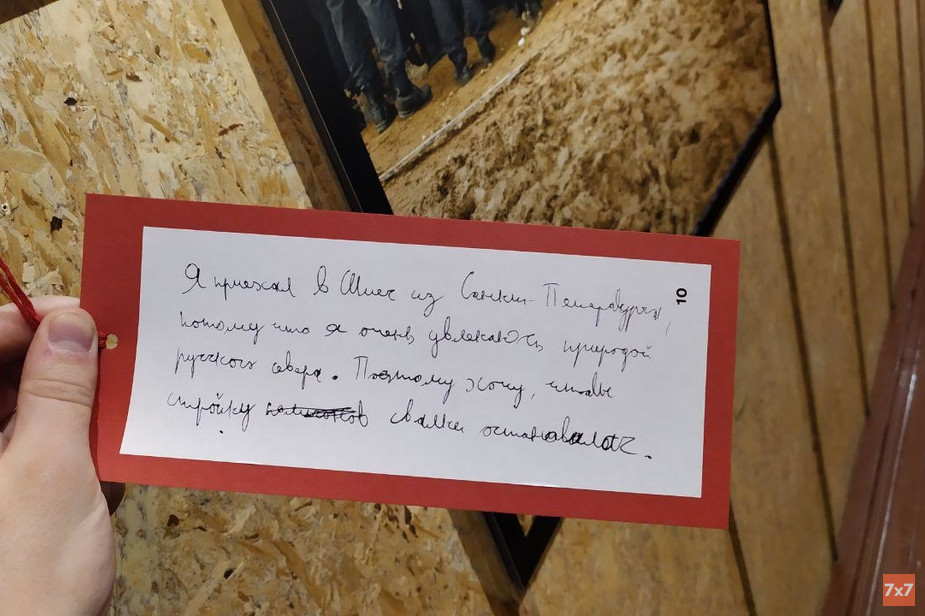 Я приехал в Шиес из Санкт-Петербурга,
потому что я очень увлекаюсь природой
русского севера. Поэтому хочу, чтобы
стройку свалки остановалась.
10
7x7